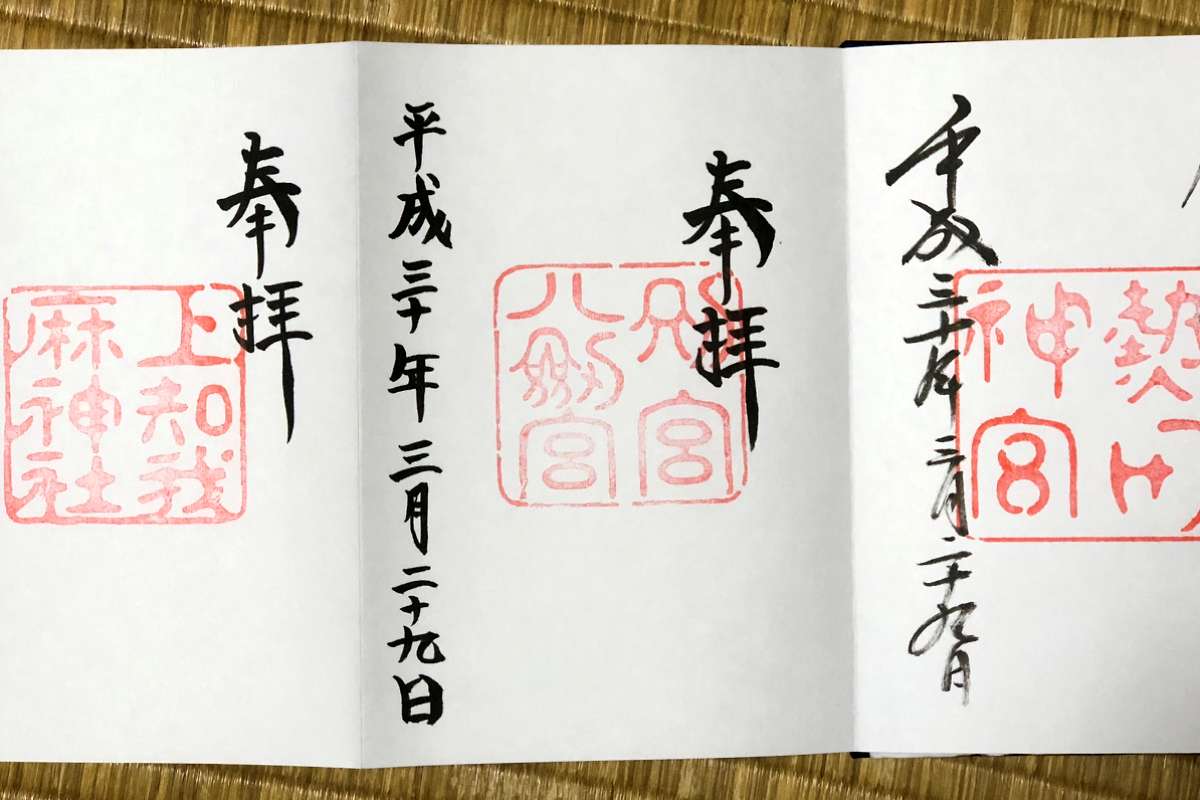 神宮
平成三十年三月二十九日
奉拝
別宮
八剣宮
平成三十年三月二十九日
奉拝
上知我
麻神社